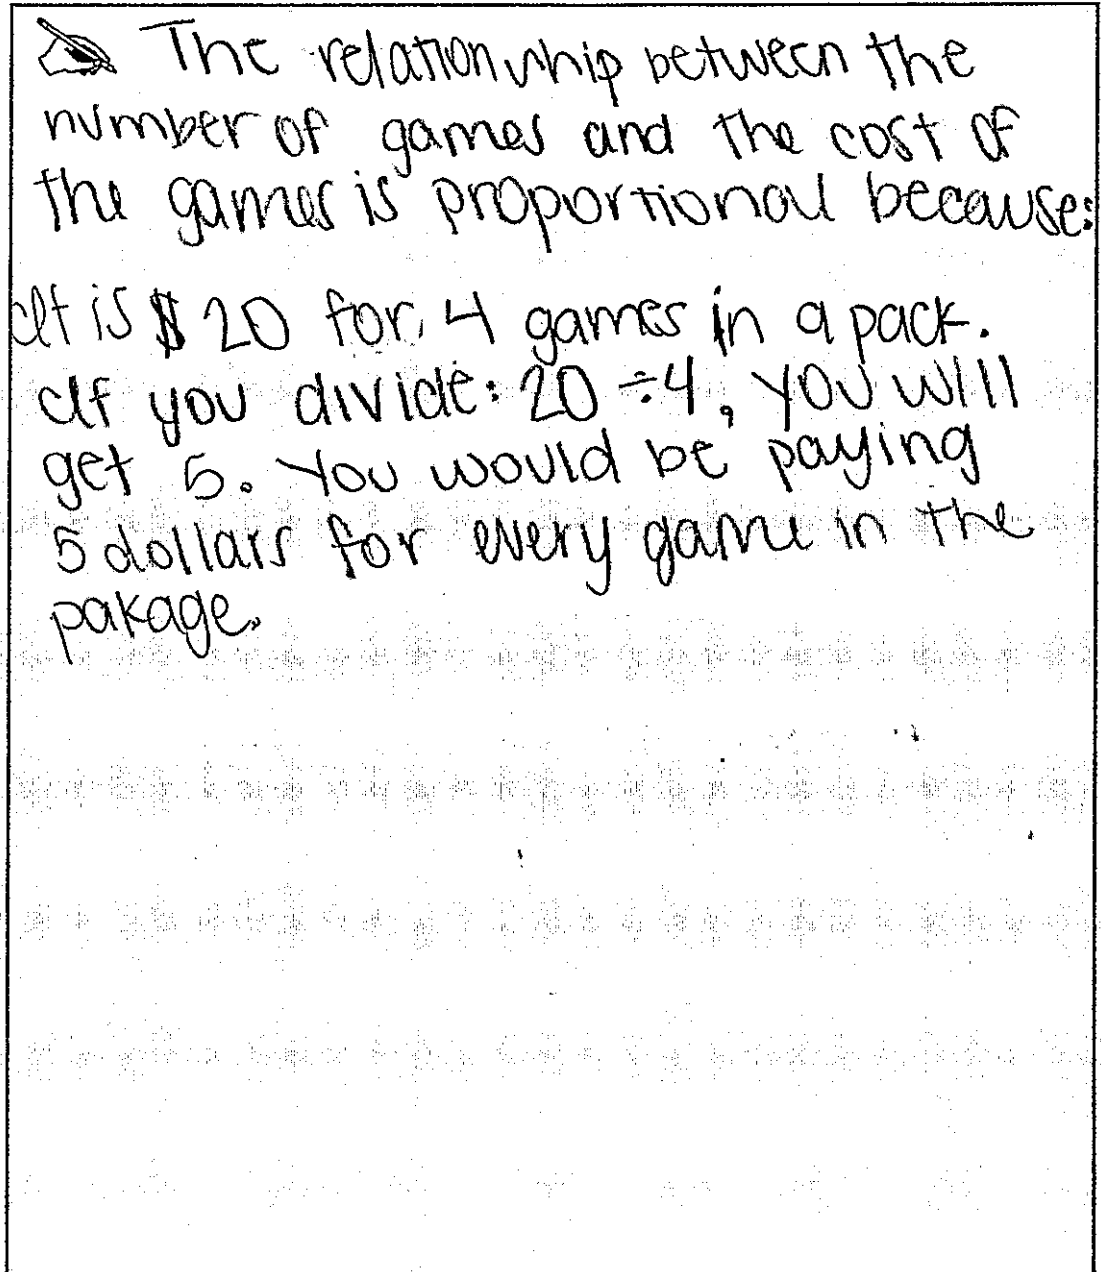 The relationship between the
number of games and the cost of
the games is proportional because:
It is $20 for 4 games in a pack.
If you divide: 20 ÷ 4, you will
get 5. You would be paying
5 dollars for every game in the
pakage.